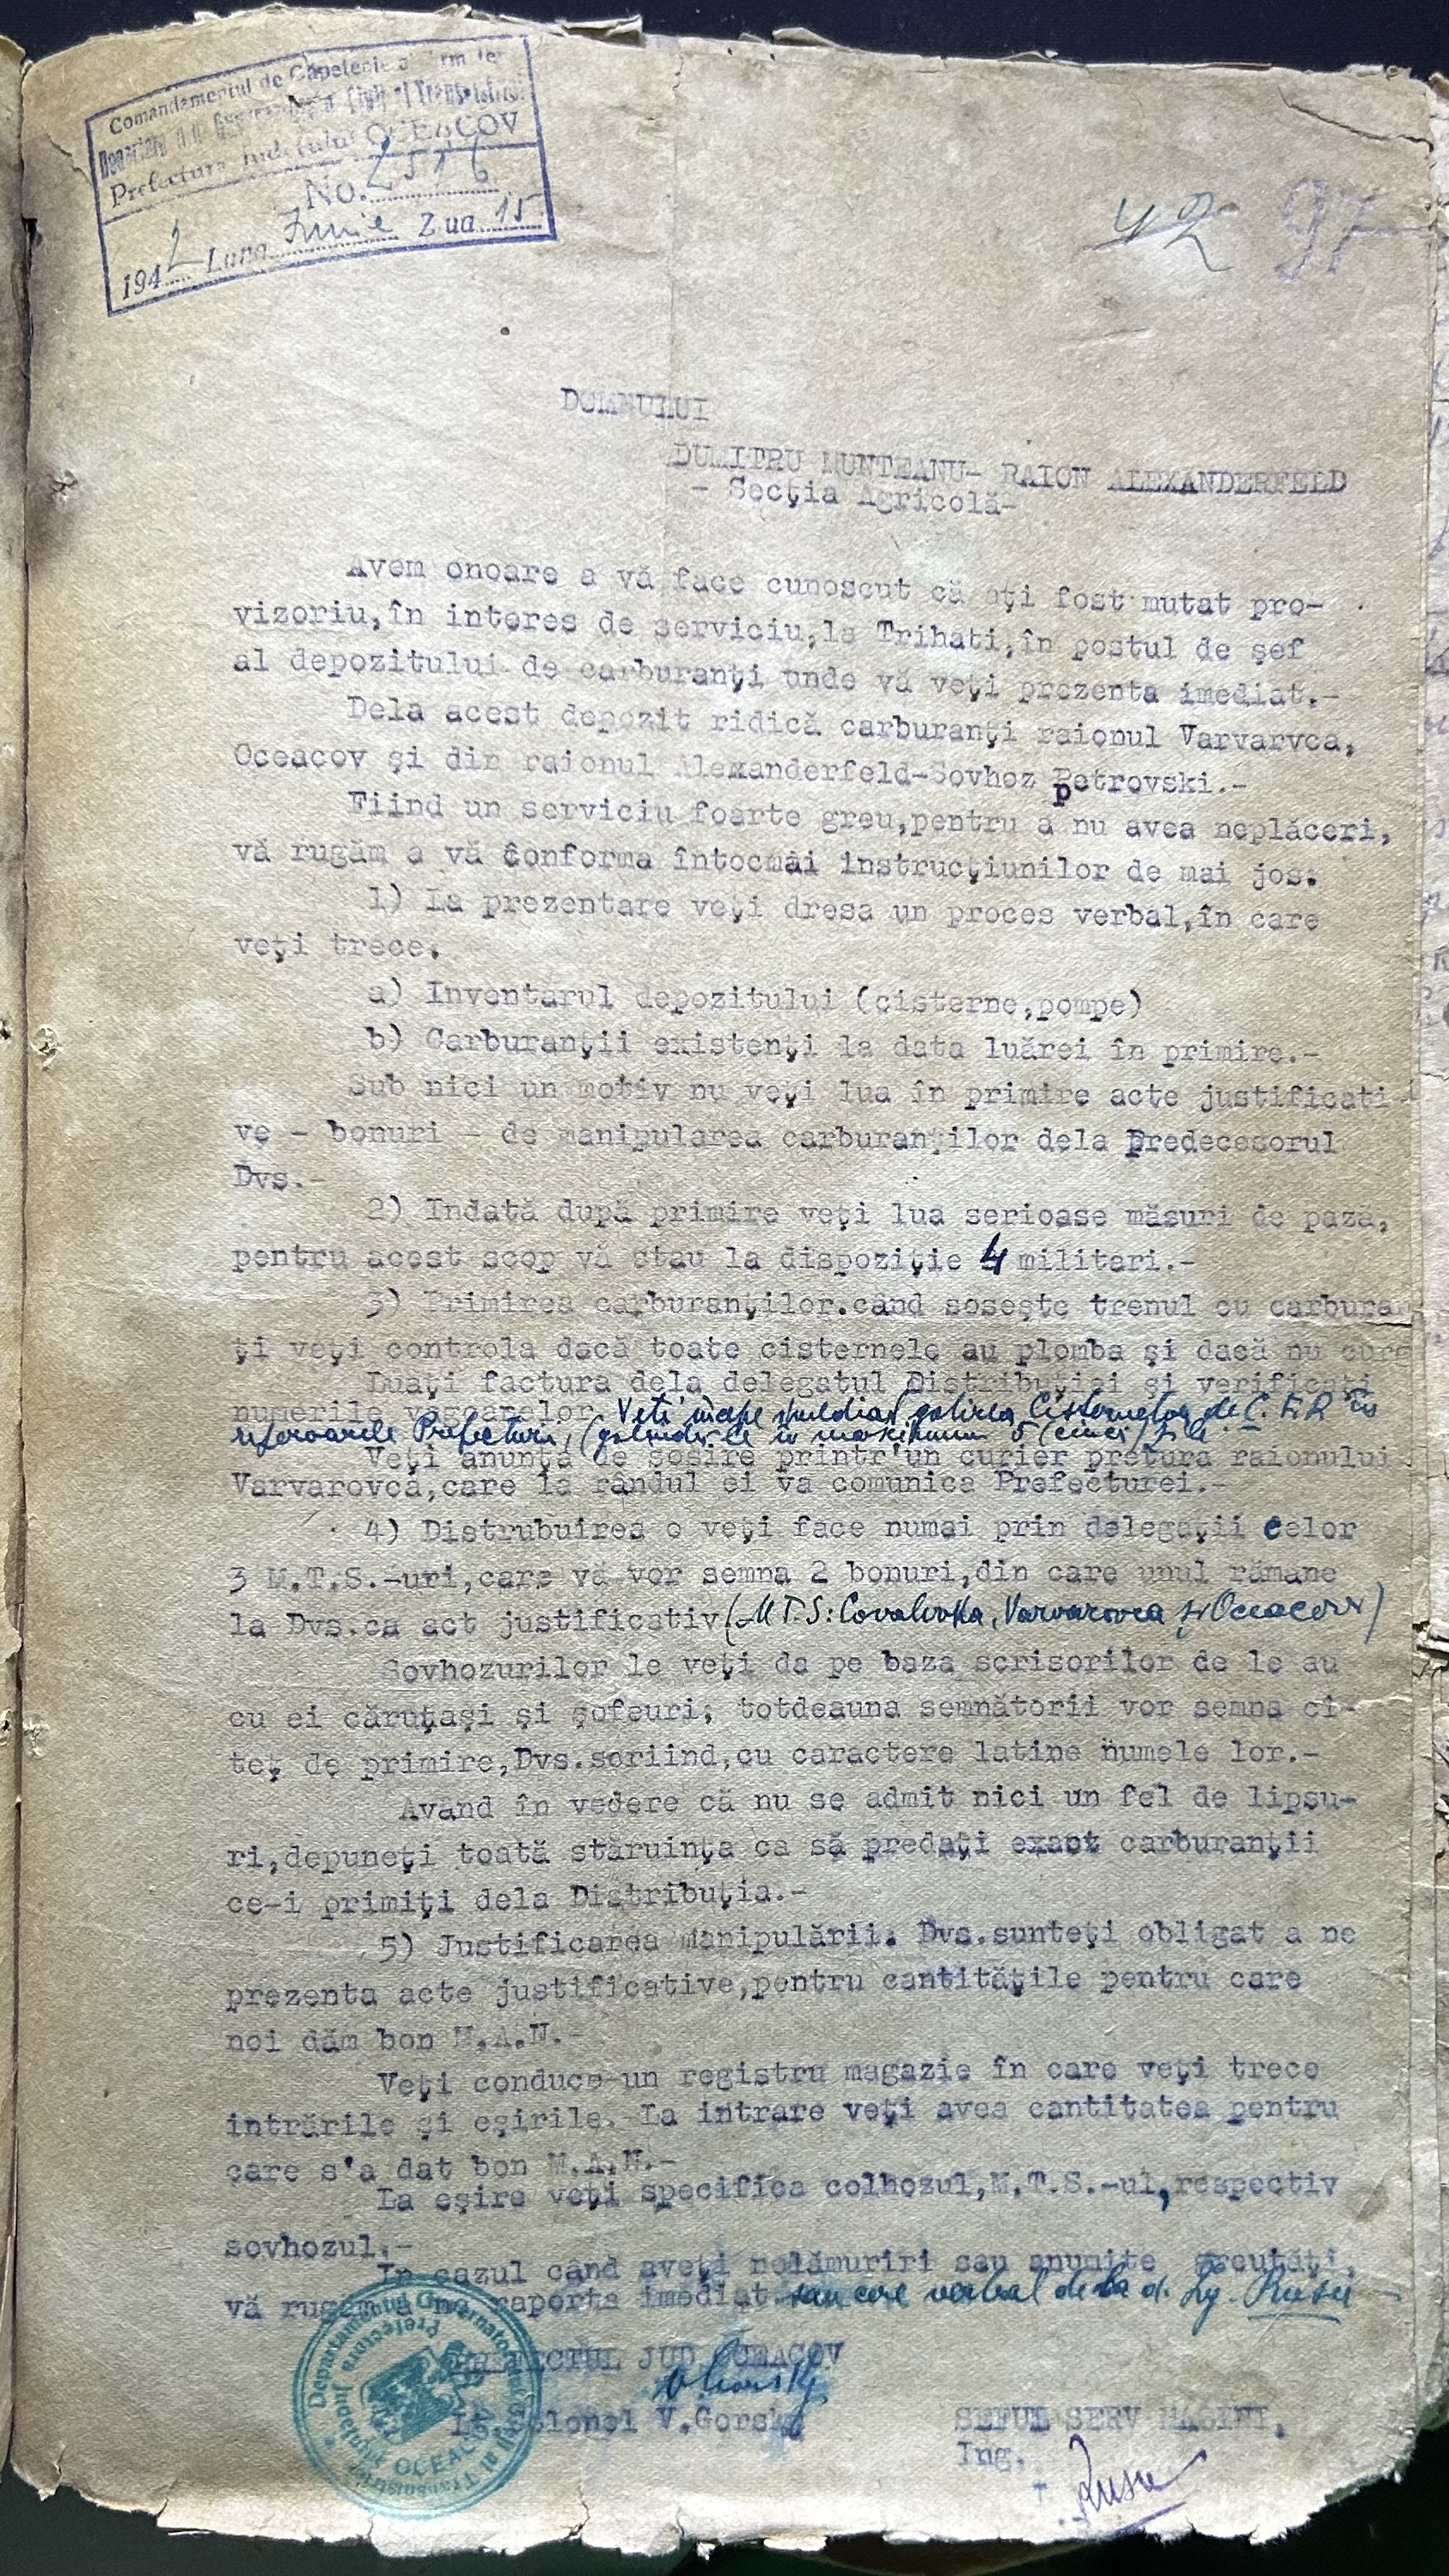 Comandamentul de Căpetenie
Prefectura Județului OCEACOV
No. 2516
1942 Luna Iunie Ziua 15
42 97
DOMNULUI
DUMITRU MUNTEANU- RAION ALEXANDERFELD
- Secția Agricolă-
Avem onoare a vă face cunoscut că ați fost mutat pro-
vizoriu,în interes de serviciu,la Trihati,în postul de șef
al depozitului de carburanți unde vă veți prezenta imediat.-
Dela acest depozit ridică carburanți raionul Varvarvca,
Oceacov și din raionul Alexanderfeld-Sovhoz Petrovski.-
Fiind un serviciu foarte greu,pentru a nu avea neplăceri,
vă rugăm a vă conforma întocmai instrucțiunilor de mai jos.
1) La prezentare veți dresa un proces verbal,în care
veți trece.
a) Inventarul depozitului (cisterne,pompe)
b) Carburanții existenți la data luărei în primire.-
Sub nici un motiv nu veți lua în primire acte justificati-
ve - bonuri - de manipularea carburanților dela Predecesorul
Dvs.-
2) Indată după primire veți lua serioase măsuri de pază,
pentru acest scop vă stau la dispoziție 4 militari.-
3) Primirea carburanților.când sosește trenul cu carbura
ți veți controla dacă toate cisternele au plomba și dacă nu curg
Luați factura dela delegatul Distribuției și verificați
numerile vagoanelor. Veți imediat golirea Cisternelor de C.F.R. în
Prefecturii, (golindu-le în maximum 5 (cinci) zile.
Veți anunța de sosire printr'un curier pretura raionului
Varvarovca,care la rândul ei va comunica Prefecturei.-
4) Distrubuirea o veți face numai prin delegații celor
3 M.T.S.-uri,care vă vor semna 2 bonuri,din care unul rămane
la Dvs.ca act justificativ.- (M.T.S: Covalevka, Varvarovca și Oceacov)
Sovhozurilor le veți da pe baza scrisorilor de le au
cu ei căruțași și șofeuri; totdeauna semnătorii vor semna ci-
teț de primire,Dvs.scriind,cu caractere latine numele lor.-
Având în vedere că nu se admit nici un fel de lipsu-
ri,depuneți toată stăruința ca să predați exact carburanții
ce-i primiți dela Distribuția.-
5) Justificarea manipulării. Dvs.sunteți obligat a ne
prezenta acte justificative,pentru cantitățile pentru care
noi dăm bon M.A.N.-
Veți conduce un registru magazie în care veți trece
intrările și eșirile. La intrare veți avea cantitatea pentru
care s'a dat bon M.A.N.-
La eșire veți specifica colhozul,M.T.S.-ul,respectiv
sovhozul.-
In cazul când aveți nelămuriri sau anumite greutăți,
vă rugăm a ne raporta imediat sau cere verbal dela d. Ing. Rusu -
PREFECTUL JUD OCEACOV
Lt.Colonel V.Gorsky
SEFUL SERV MASINI,
Ing.
Rusu
Prefectura Județului OCEACOV